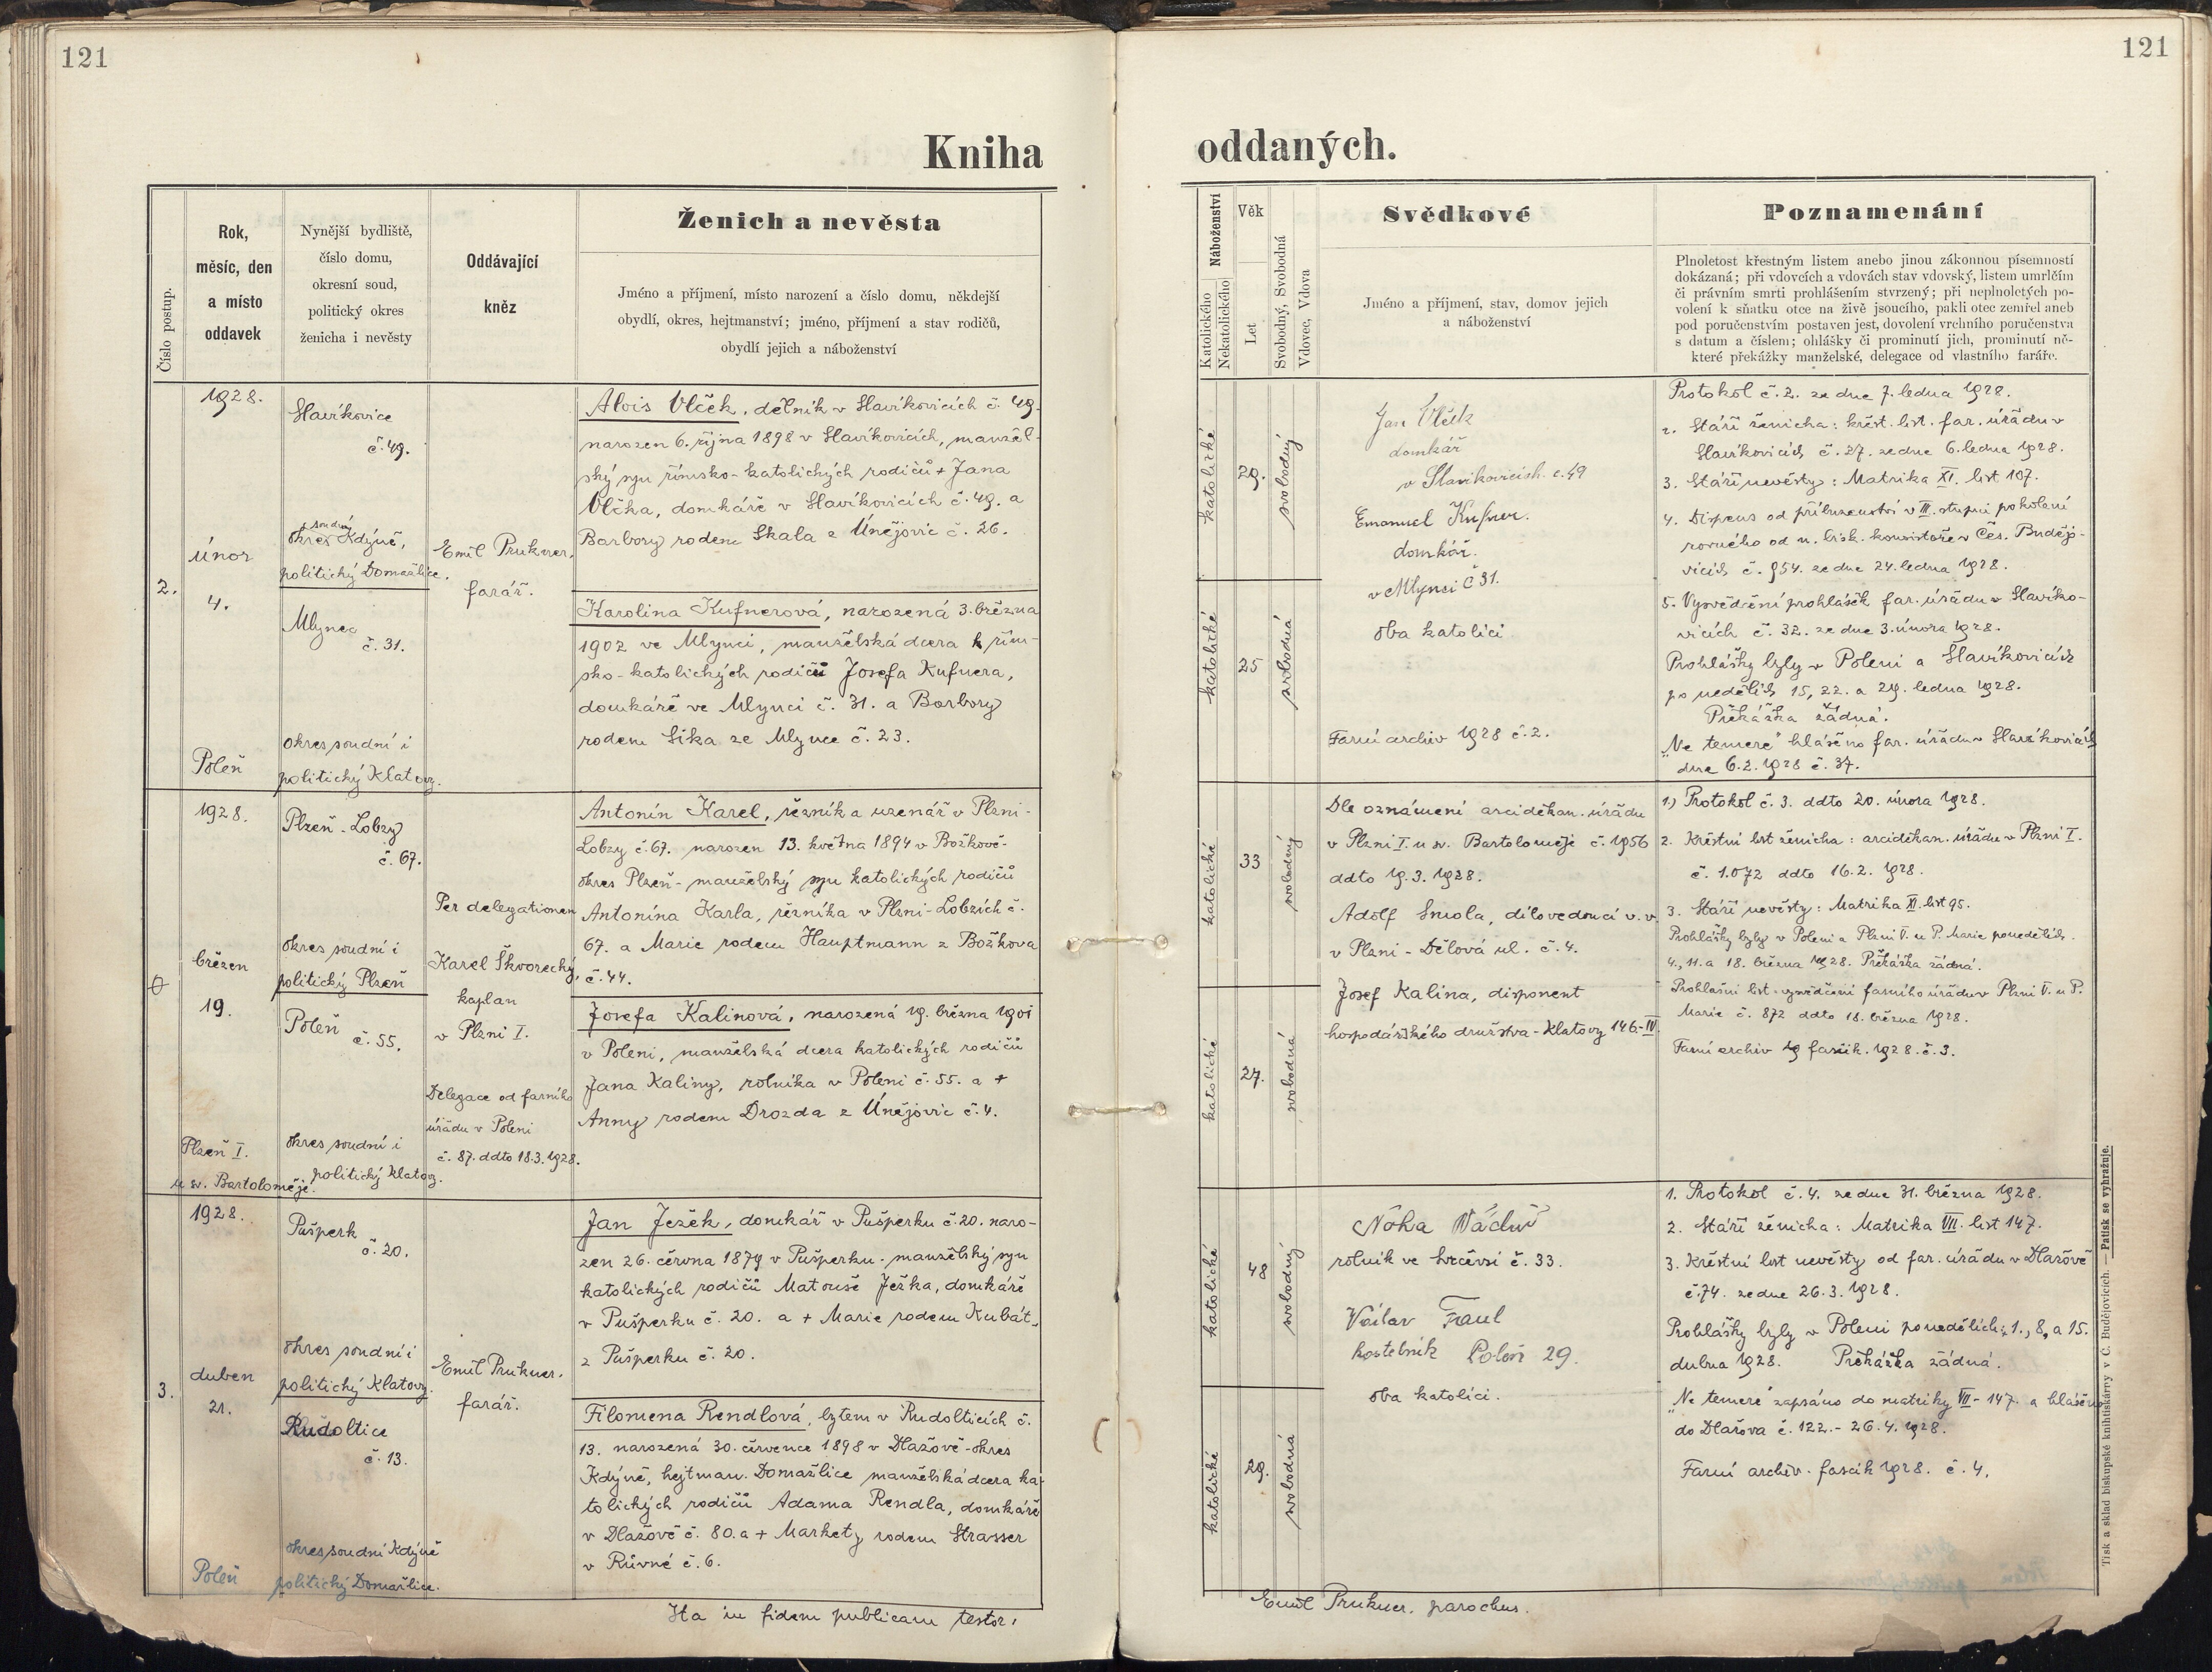 121
121
Kniha
oddaných.
Číslo postup.
Rok,
měsíc, den
a místo
oddavek
Nynější bydliště,
číslo domu,
okresní soud,
politický okres
ženicha i nevěsty
Oddávající
kněz
Ženich a nevěsta
Jméno a příjmení, místo narození a číslo domu, někdejší
obydlí, okres, hejtmanství; jméno, příjmení a stav rodičů,
obydlí jejich a náboženství
Náboženství
Katolického
Nekatolického
Věk
Let
Svobodný, Svobodná
Vdovec, Vdova
Svědkové
Jméno a příjmení, stav, domov jejich
a náboženství
Poznamenání
Plnoletost křestným listem anebo jinou zákonnou písemností
dokázaná; při vdovcích a vdovách stav vdovský, listem umrlčím
či právním smrti prohlášením stvrzený; při neplnoletých po-
volení k sňatku otce na živě jsoucího, pakli otec zemřel aneb
pod poručenstvím postaven jest, dovolení vrchního poručenstva
s datum a číslem; ohlášky či prominutí jich, prominutí ně-
které překážky manželské, delegace od vlastního faráře.
2.
1928.
únor
4.
Poleň
Slavíkovice
č. 49.
soudný
okres Kdýně,
politický Domažlice.
Mlynec
č. 31.
okres soudní i
politický Klatovy.
Emil Prukner,
farář.
Alois Vlček, dělník v Slavíkovicích č. 49.
narozen 6. října 1898 v Slavíkovicích, manžel-
ský syn římsko-katolických rodičů + Jana
Vlčka, domkáře v Slavíkovicích č. 49. a
Barbory rodem Skala z Únějovic č. 26.
Karolina Kufnerová, narozená 3. března
1902 ve Mlynci, manželská dcera řím-
sko-katolických rodičů Josefa Kufnera,
domkáře ve Mlynci č. 31. a Barbory
rodem Sika ze Mlynce č. 23.
katolické
29.
svobodný
katolické
25
svobodná
Jan Vlček
domkář
v Slavikovicich. c. 49
Emanuel Kufner.
domkář.
v Mlynci č 31.
oba katolíci.
Farní archiv 1928 č. 2.
Protokol č. 2. ze dne 7. ledna 1928.
2. Stáří ženicha: křest. list. far. úřadu v
Slavíkovicích č. 27. ze dne 6. ledna 1928.
3. Stáří nevěsty: Matrika XI. list 107.
4. Dispens od příbuzenství v III. stupni pokolení
rovného od n. bisk. konsistoře v Čes. Buděj-
vicích č. 954. ze dne 24. ledna 1928.
5. Vysvědčení prohlášek far. úřadu v Slavíko-
vicích č. 32. ze dne 3. února 1928.
Prohlášky byly v Poleni a Slavíkovicích
po nedělích 15, 22. a 29. ledna 1928.
Překážka žádná.
"Ne temere" hlášeno far. úřadu v Slavíkovicích
dne 6.2.1928 č. 37.
1928.
březen
19.
Plzeň I.
u sv. Bartoloměje.
Plzeň-Lobzy
č. 67.
okres soudní i
politický Plzeň
Poleň
č. 55.
okres soudní i
politický Klatovy.
Per delegationem
Karel Škvorecký,
kaplan
v Plzni I.
Delegace od farního
úřadu v Poleni
č. 87. ddto 18.3.1928.
Antonín Karel, řezník a uzenář v Plzni-
Lobzy č. 67. narozen 13. května 1894 v Božkově-
okres Plzeň- manželský syn katolických rodičů
Antonína Karla, řezníka v Plzni-Lobzích č.
67. a Marie rodem Hauptmann z Božkova
č. 44.
Josefa Kalinová, narozená 19. března 1901
v Poleni, manželská dcera katolických rodičů
Jana Kaliny, rolníka v Poleni č. 55. a +
Anny rodem Drozda z Únějovic č. 4.
katolické
33
svobodný
katolické
27.
svobodná
Dle oznámení arciděkan. úřadu
v Plzni I. u sv. Bartoloměje č. 1956
ddto 19.3.1928.
Adolf Smola, dílovedoucí v. v.
v Plzni - Dělová ul. č. 4.
Josef Kalina, disponent
hospodářského družstva-Klatovy 146-IV.
1.) Protokol č. 3. ddto 20. února 1928.
2. Křestní list ženicha: arciděkan. úřadu v Plzni I.
č. 1.072 ddto 16.2. 1928.
3. Stáří nevěsty: Matrika XI. list 95.
Prohlášky byly v Poleni a Plzni V. u P. Marie po nedělích
4., 11. a 18. března 1928. Překážka žádná.
Prohlašní list - vysvědčení farního úřadu v Plzni V. u P.
Marie č. 872 ddto 18. března 1928.
Farní archiv fascik. 1928. č. 3.
3.
1928.
duben
21.
Poleň
Pušperk
č. 20.
okres soudní i
politický Klatovy.
Rudoltice
č. 13.
okres soudní Kdýně
politický Domažlice.
Emil Prukner.
farář.
Jan Ježek, domkář v Pušperku č. 20. naro-
zen 26. června 1879 v Pušperku- manželský syn
katolických rodičů Matouše Ježka, domkáře
v Pušperku č. 20. a + Marie rodem Kubát-
z Pušperku č. 20.
Filomena Rendlová, bytem v Rudolticích č.
13. narozená 30. července 1898 v Dlažově-okres
Kdýně, hejtman. Domažlice manželská dcera ka-
tolických rodičů Adama Rendla, domkáře
v Dlažově č. 80. a + Markety rodem Strasser
v Růvné č. 6.
katolické
48
svobodný
katolické
29.
svobodná
Noha
rolník ve č. 33.
Václav Faul
kostelník Poleň 29.
oba katolíci.
1. Protokol č. 4. ze dne 31. března 1928.
2. Stáří ženicha: Matrika VII. list 147.
3. Křestní list nevěsty od far. úřadu v Dlažově
č. 74. ze dne 26.3.1928.
Prohlášky byly v Poleni po nedělích: 1., 8, a 15.
dubna 1928. Překážka žádná.
"Ne temere" zapsáno do matriky VII-147. a hlášeno
do Dlažova č. 122.- 26.4.1928.
Farní archiv. fascik 1928. č. 4.
Ita in fidem publicam testor:
Emil Prukner, parochus.
Tisk a sklad biskupské knihtiskárny v Č. Budějovicích. — Patisk se vyhražuje.